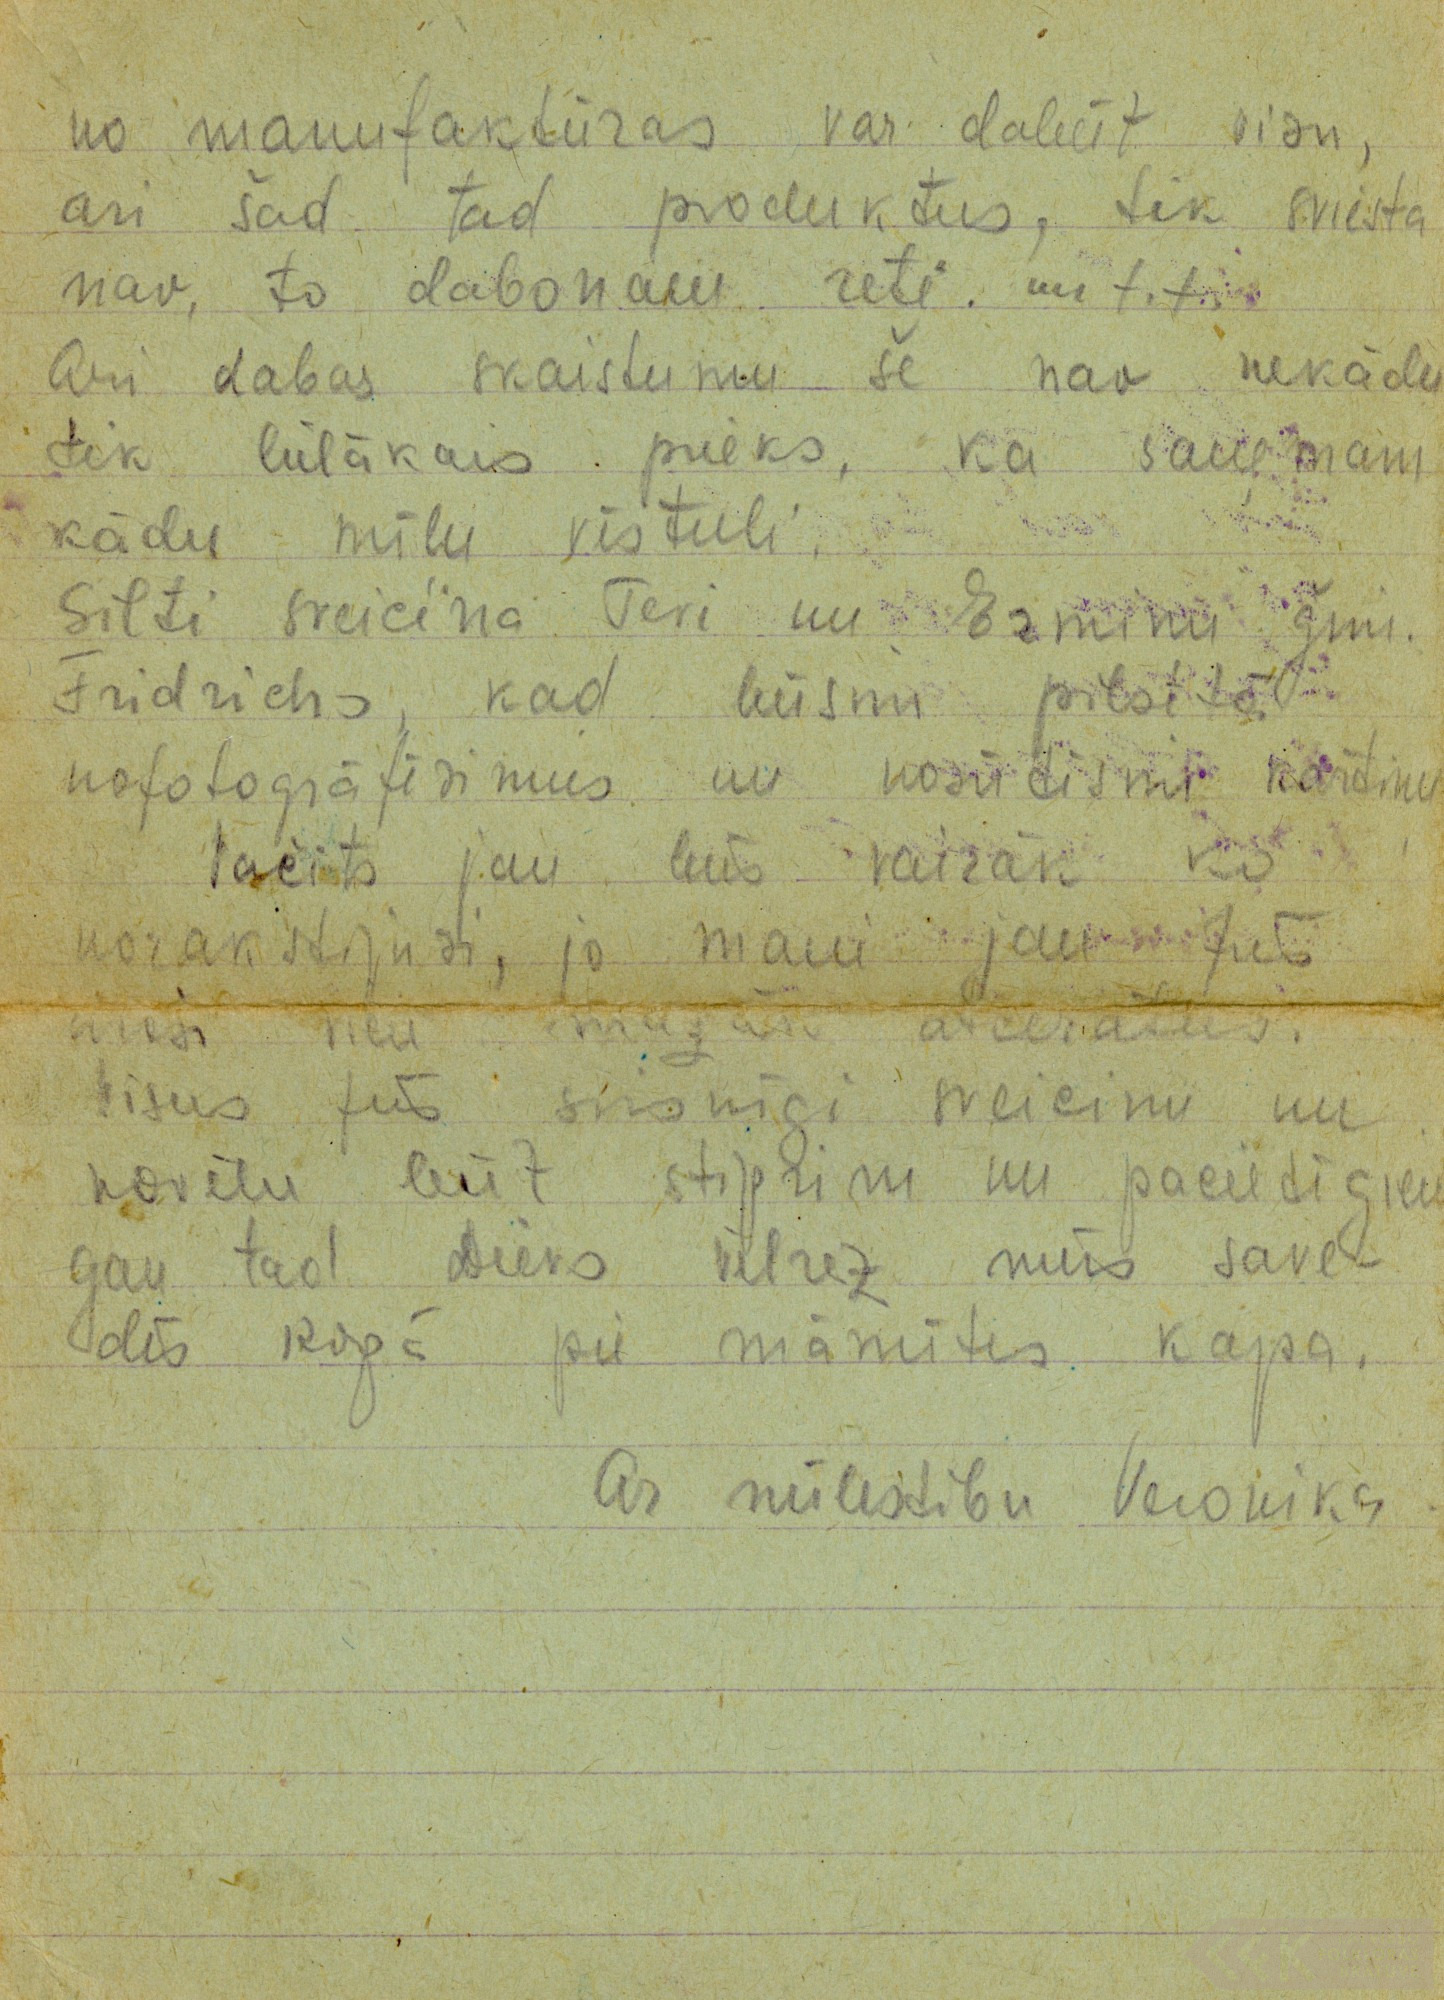 no manufaktūras var dabūt visu,
ari šad tad produktus, tik sviesta
nav, to dabonam reti. un t.t.
Ari dabas skaistumu še nav nekādu
tik lielākais prieks, ka saņemam
kādu mīļu vēstuli.
Silti sveicina Tevi un Ermiņu ģim.
Fridrichs, kad būsim pilsētā
nofotografēsimies un nosūtīsim kartiņu
Vaclits jau būs vairāk ko
norakstijusi, jo mani jau jūs
visi neu mazāk atcerāties.
Visus jūs sirsnigi sveicinu un
novēlu būt stipriem un pacietigiem
gan tad Dievs vēlreiz mūs save-
dīs kopā pie māmiņas kapa.
Ar mīlestibu Veronika